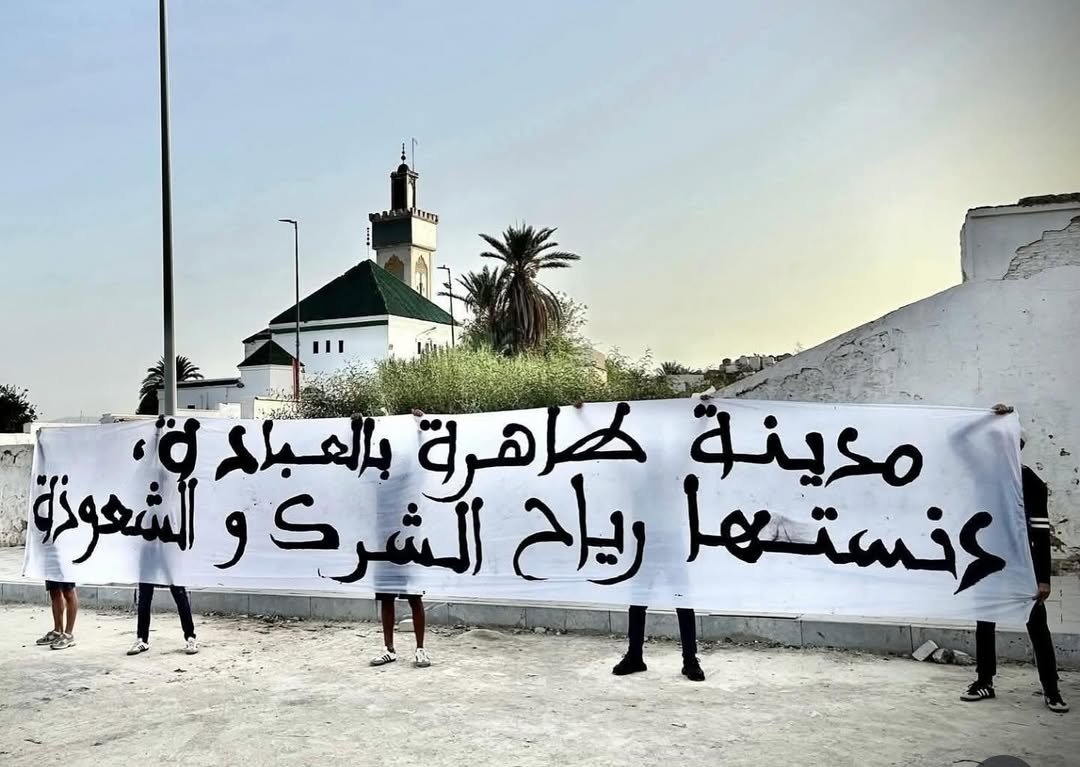 مدينة طاهرة بالعبادة،
دنستها رياح الشرك و الشعوذة